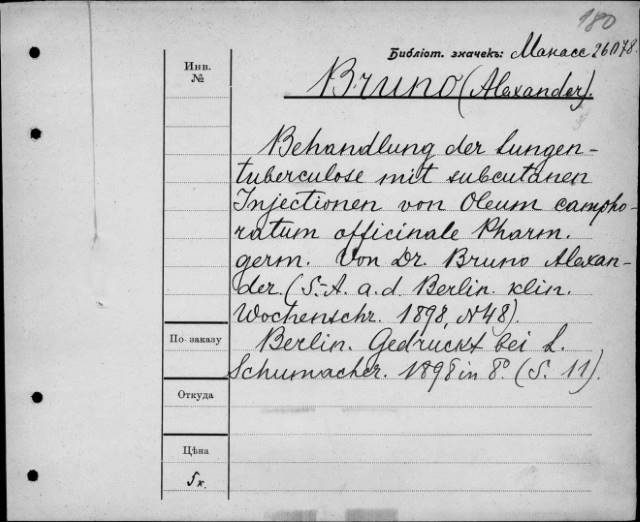 180
Библіот. значекъ: Манасс 26 D 78.
Инв.
№
Bruno (Alexander).
Behandlung der Lungen-
tuberculose mit subcutanen
Injectionen von Oleum campho-
ratum officinale Pharm.
germ. Von Dr. Bruno Alexan-
der. (S.-A. a. d. Berlin. klin.
Wochenschr. 1898, N 48).
По заказу
Berlin. Gedruckt bei L.
Schumacher. 1898 in 8º. (S. 11).
Откуда
Цѣна
5 к.